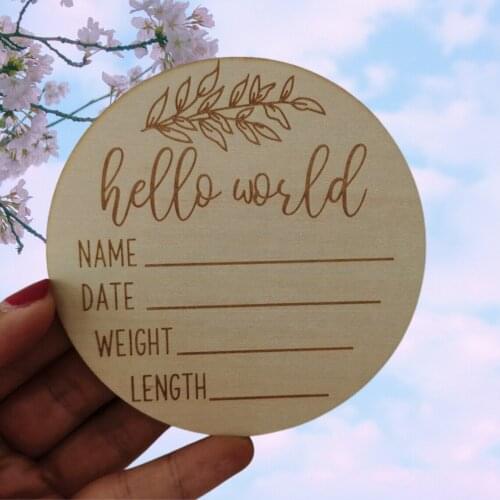 hello world
NAME
DATE
WEIGHT
LENGTH